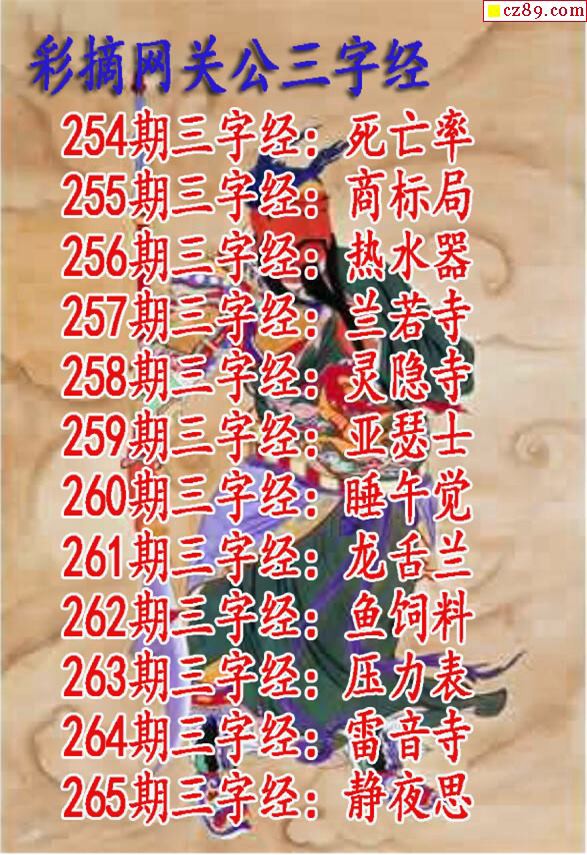 cz89.com
彩摘网关公三字经
254期三字经：死亡率
255期三字经：商标局
256期三字经：热水器
257期三字经：兰若寺
258期三字经：灵隐寺
259期三字经：亚瑟士
260期三字经：睡午觉
261期三字经：龙舌兰
262期三字经：鱼饲料
263期三字经：压力表
264期三字经：雷音寺
265期三字经：静夜思